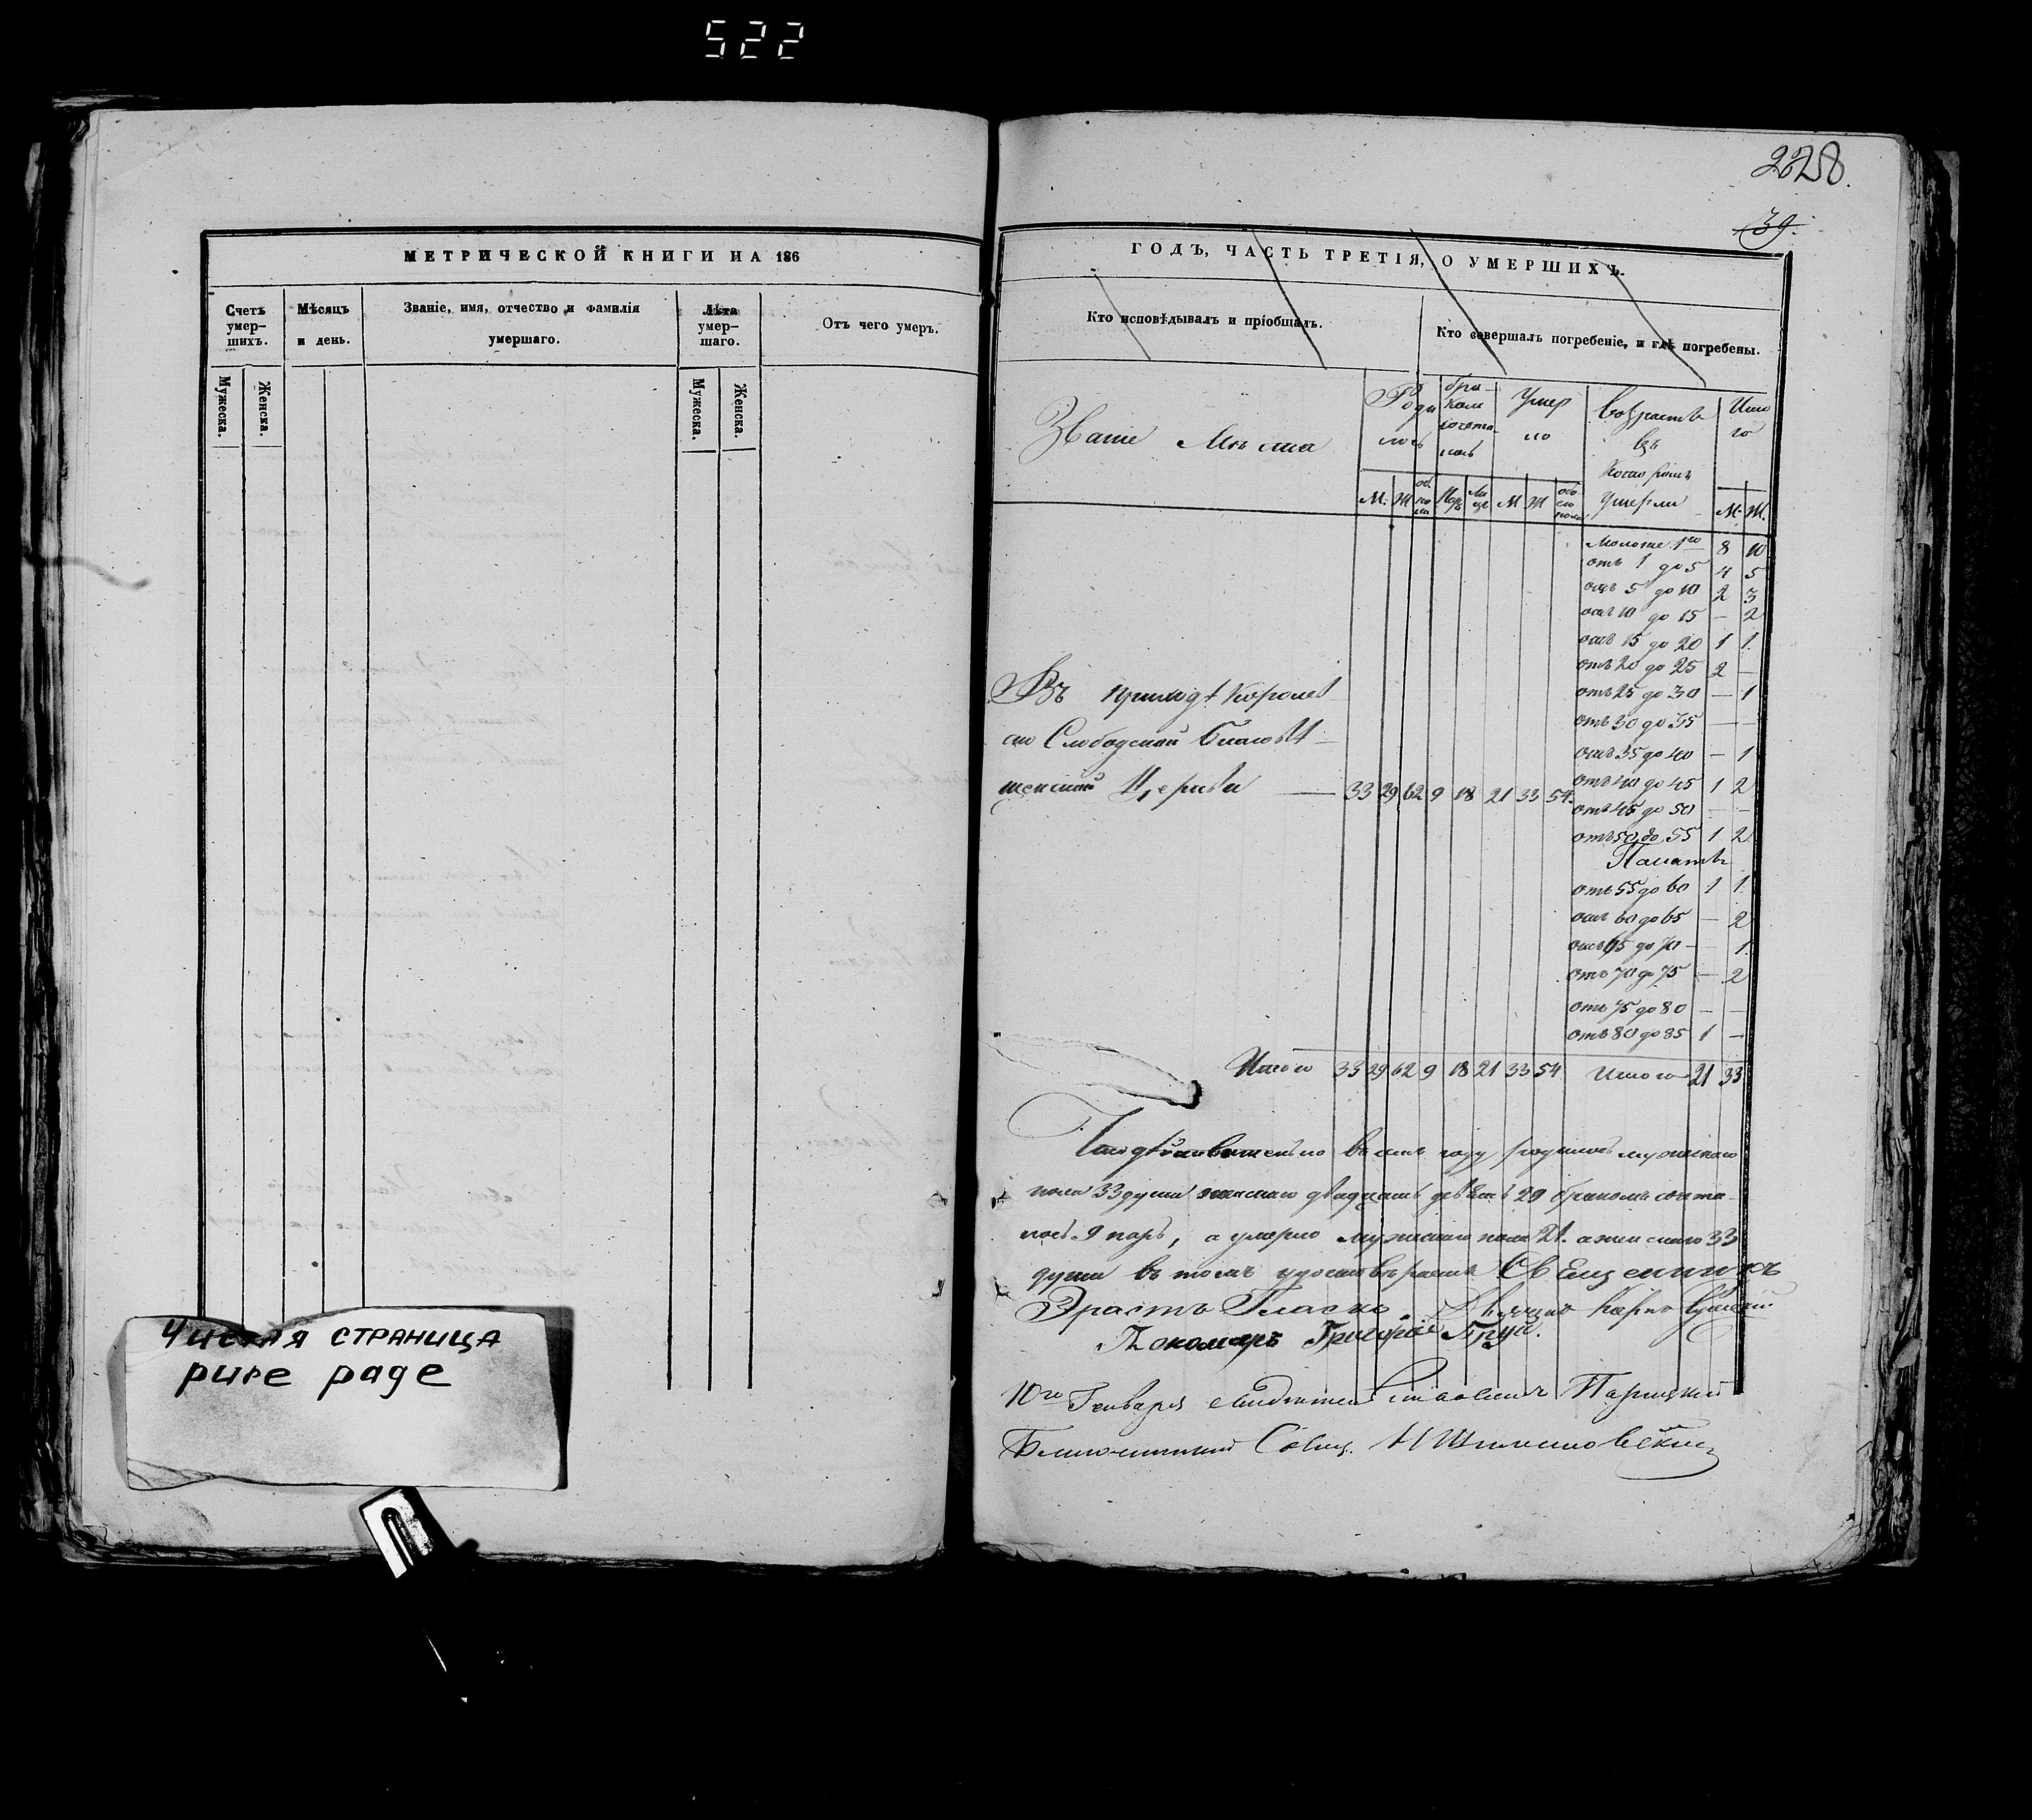 522
МЕТРИЧЕСКОЙ КНИГИ НА 186
Счетъ умер-шихъ.
Мѣсяцъ и день.
Званіе, имя, отчество и фамилія умершаго.
Лѣта умер-шаго.
Отъ чего умеръ.
Мужеска. Женска.
Мужеска. Женска.
Чистая страница
pure page
228.
39.
ГОДЪ, ЧАСТЬ ТРЕТІЯ, О УМЕРШИХЪ.
Кто исповѣдывалъ и пріобщалъ.
Кто совершалъ погребеніе, и гдѣ погребены.
Званіе Мѣста
Родилось
Умерло
Возрастъ въ
умерли
Итого
М. Ж. М Ж М. Ж.
от 1 до 5 4 5
отъ 5 до 10 2 3
отъ 10 до 15 — 2
отъ 15 до 20 1 1
отъ 20 до 25 2 —
отъ 25 до 30 — 1
отъ 30 до 35 — —
отъ 35 до 40 — 1
отъ 40 до 45 1 2
отъ 45 до 50 — —
отъ 50 до 55 1 2
отъ 55 до 60 1 1
отъ 60 до 65 — 2
отъ 65 до 70 — 1
отъ 70 до 75 — 2
отъ 75 до 80 — —
отъ 80 до 85 1 —
Въ приходѣ
Слободской
Церкви — 33 29 62 9 18 21 33 54
Итого 33 29 62 9 18 21 33 54 Итого 21 33
Что дѣйствительно въ семъ году родилось мужескаго
пола 33 души женскаго двадцать девять 29 бракомъ сочета-
лось 9 паръ, а умерло мужескаго пола 21. а женскаго 33
души въ томъ Священникъ
Эрастъ
Пономарь Григорій
10го Генваря